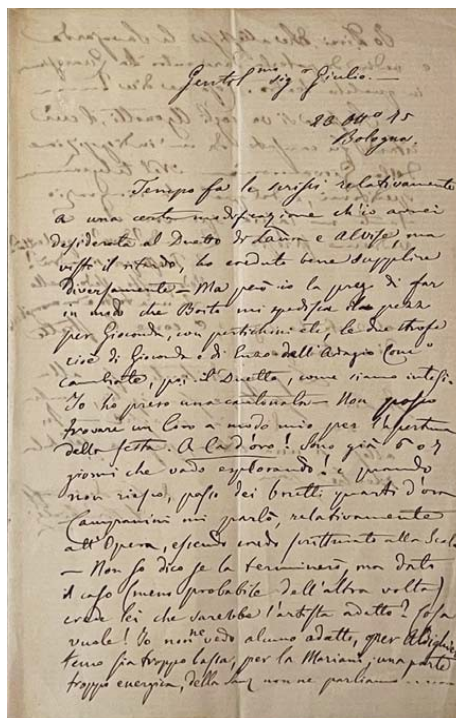 Gentil.mo sig.r Giulio.—
20 Ott.o 75
Bologna
Tempo fa le scrissi relativamente
a una certa modificazione ch'io avrei
desiderato al Duetto di Laura e Alvise, ma
visto il ritardo, ho creduto bene supplire
diversamente — Ma però io la prego di far
in modo che Boito mi spedisca pezzo
per Gioconda, con pertichini etc, le due strofe
cioè di Gioconda e di Enzo dall'Adagio Conc.o
cambiate, poi il Duetto, come siamo intesi.
Io ho preso una cantonata — Non posso
trovare un Coro a modo mio per l'apertura
della festa. A Ca d'oro! Sono già 6 o 7
giorni che vado esplorando! e quando
non riesco, passo dei brutti quarti d'ora
Campanini mi parlò, relativamente
all'Opera, essendo credo scritturato alla Scala
— Non so dico se la terminerò, ma dato
il caso (meno probabile dell'altra volta)
crede lei che sarebbe l'artista adatto? Cosa
vuole! Io non ne vedo alcuno adatto, per Aldighieri
temo sia troppo bassa, per la Mariani, una parte
troppo energica, della non ne parliamo......